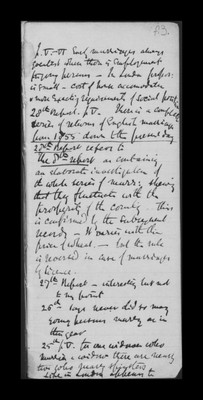 P3.
J.V. — VI Early marriages always
greatest where there is Employment
for young persons — In London
is small — cost of house accomodation
& more expensive requirements of social
28th Report. J.V. There is a complete
series of returns of English marriages
from 1755 down to the present day
27th Report refers to
The 8th report as containing
an elaborate investigation of
the whole series of marrs, showing
that they fluctuate with the
prosperity of the country — This
is confirmed by the subsequent
records — It varies with the
price of wheat. — but the rule
is reversed in case of marriages
by licence.
27th Report — interesting but not
to my point
26th — large never did so many
young persons marry as in
this year
25th J.V. To one widower who
marries a widow there are nearly
two who marry spinsters
in London